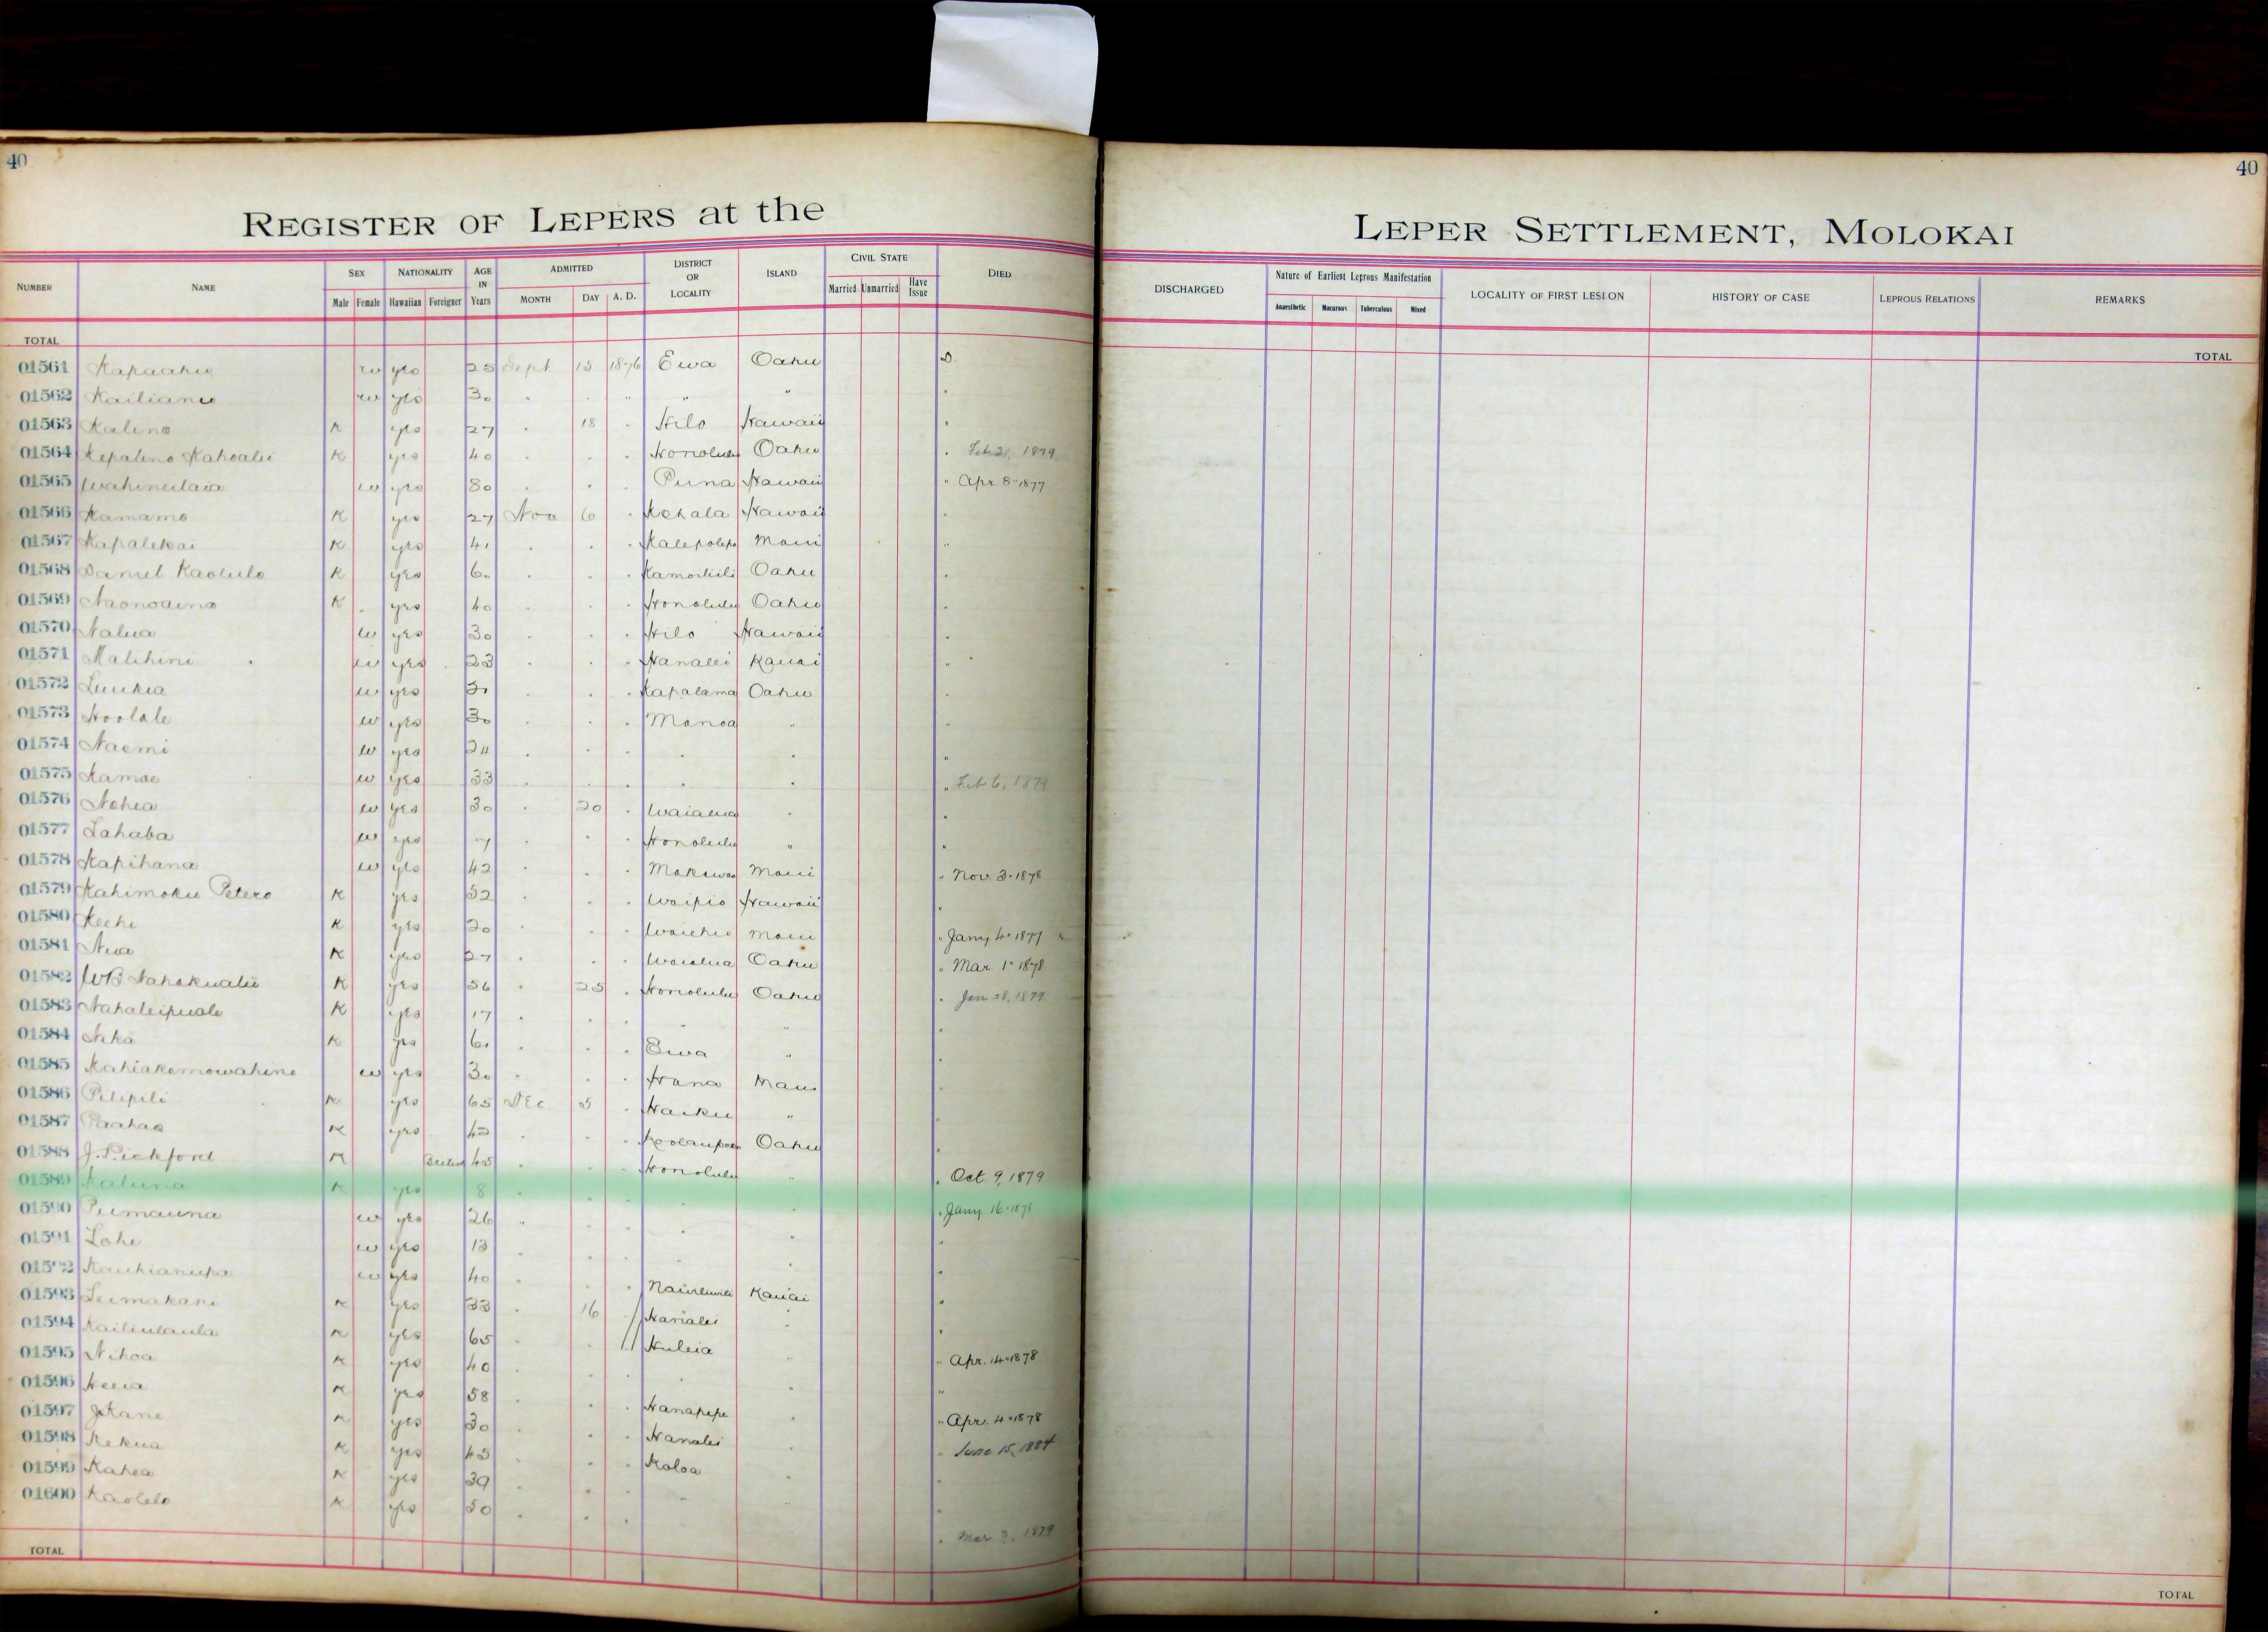 40
40
REGISTER OF LEPERS at the
LEPER SETTLEMENT, MOLOKAI
NUMBER NAME SEX Male Female NATIONALITY Hawaiian Foreigner AGE IN Years ADMITTED MONTH DAY A. D. DISTRICT OR LOCALITY ISLAND CIVIL STATE Married Unmarried Have Issue DIED
DISCHARGED Nature of Earliest Leprous Manifestation Anaesthetic Macurous Tuberculous Mixed LOCALITY OF FIRST LESION HISTORY OF CASE LEPROUS RELATIONS REMARKS
TOTAL
TOTAL
01561 Kapaahu w yes 25 Sept 15 1876 Ewa Oahu D.
01562 Kailianu w yes 30 . . " " " "
01563 Kalino K yes 27 . 18 . Hilo Hawaii "
01564 Kepalino Kahoalii K yes 40 . . . Honolulu Oahu . Feb 21, 1879
01565 Wahineilaia w yes 80 . . . Puna Hawaii " Apr. 8 1877
01566 Kamamo K yes 27 Nov 6 . Kohala Hawaii .
01567 Kapalekai K yes 41 . . . Kalepolepo Maui "
01568 Daniel Kaolulo K yes 60 . " . Kamoiliili Oahu .
01569 Naonoaina K yes 40 . . . Honolulu Oahu .
01570 Nalua w yes 30 " . . Hilo Hawaii .
01571 Malihini w yes 23 . . . Hanalei Kauai .
01572 Luukia w yes . . . Kapalama Oahu "
01573 Hoolale w yes 30 . . . Manoa " "
01574 Naomi w yes 24 . . . . . "
01575 Kamae w yes 33 . . . . . " Feb 6, 1879
01576 Nohea w yes 30 . 20 . Waialua . "
01577 Lahaba w yes 7 . . . Honolulu " "
01578 Kapihana w yes 42 . . . Makawao Maui " Nov. 3. 1878
01579 Kahimoku Petero K yes 52 . " . Waipio Hawaii "
01580 Keehi K yes 20 . . . Waiehu Maui " Jany 4 1877
01581 Niva K yes 27 . . . Waialua Oahu " Mar. 1 1878
01582 WB Nahokualii K yes 56 . 25 . Honolulu Oahu . Jan 28, 1879
01583 Nahaleipuole K yes 17 . . . " " "
01584 Nika K yes 61 . . . Ewa " .
01585 Kahiakemowahine w yes 30 . . . Hana Maui "
01586 Pilipili K yes 65 Dec 5 . Haiku " "
01587 Paahao K yes 42 . . . Koolaupoko Oahu "
01588 J. Pickford K 45 . . . Honolulu " . Oct. 9, 1879
01589 Kaluna K yes 8 . " . . . . Jany 16. 1878
01590 Puimauna w yes 26 " . . " . "
01591 Lohe w yes 13 . . . . . "
01592 Kauhianupa w yes 40 . . . Nawiliwili Kauai "
01593 Leimakani K yes 33 . 16 Hanalei " .
01594 Kailiulaula K yes 65 . . Huleia "
01595 Nihoa K yes 40 . . . . . " Apr. 14. 1878
01596 Heeia K yes 58 . . . Hanapepe . "
01597 J Kane K yes 30 . . . Hanalei . " Apr. 4. 1878
01598 Kekua K yes 45 . . . Koloa . " June 15, 1884
01599 Kahea K yes 39 . " . " " "
01600 Kaolelo K yes 50 . . . . Mar 3, 1879
TOTAL
TOTAL